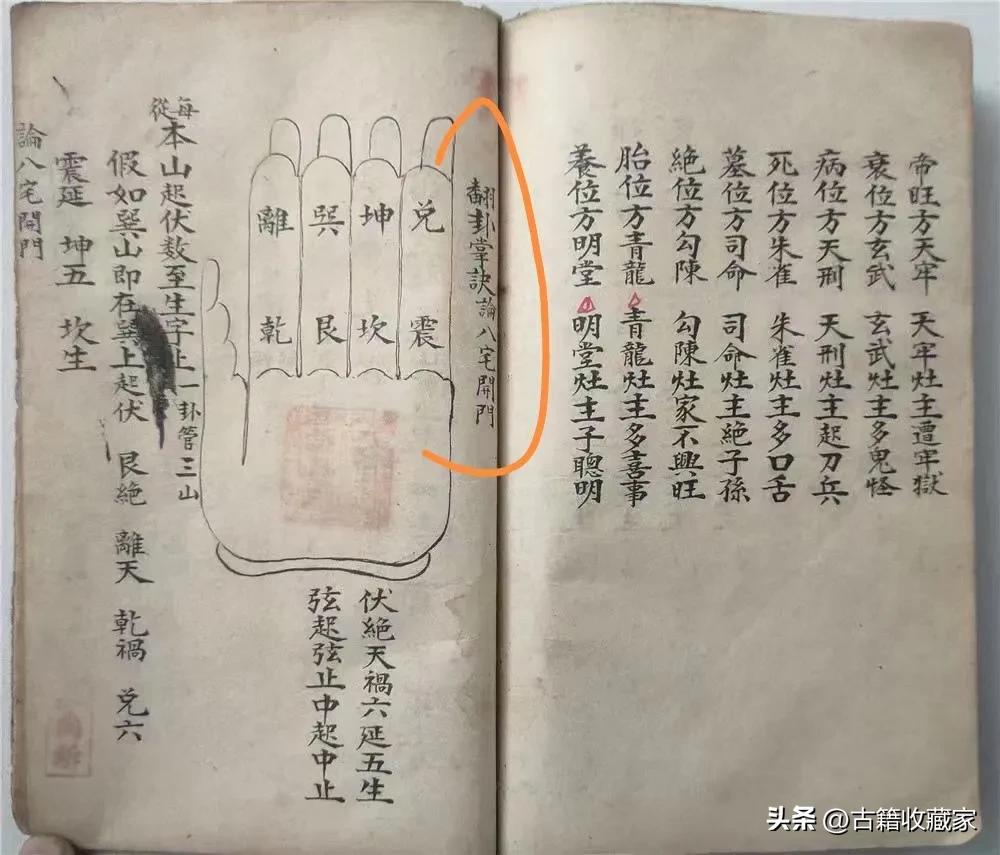 帝旺方天牢　天牢灶主遭牢獄
衰位方玄武　玄武灶主多鬼怪
病位方天刑　天刑灶主起刀兵
死位方朱雀　朱雀灶主多口舌
墓位方司命　司命灶主絕子孫
絕位方勾陳　勾陳灶家不興旺
胎位方青龍　青龍灶主多喜事
養位方明堂　明堂灶主子聰明
翻卦掌訣論八宅開門
兌　震
坤　坎
巽　艮
離　乾
伏絕天禍六延五生
弦起弦止中起中止
每從本山起伏数至生字止一卦管三山
假如巽山即在巽上起伏　艮絕　離天　乾禍　兌六
震延　坤五　坎生
論八宅開門
头条 @古籍收藏家